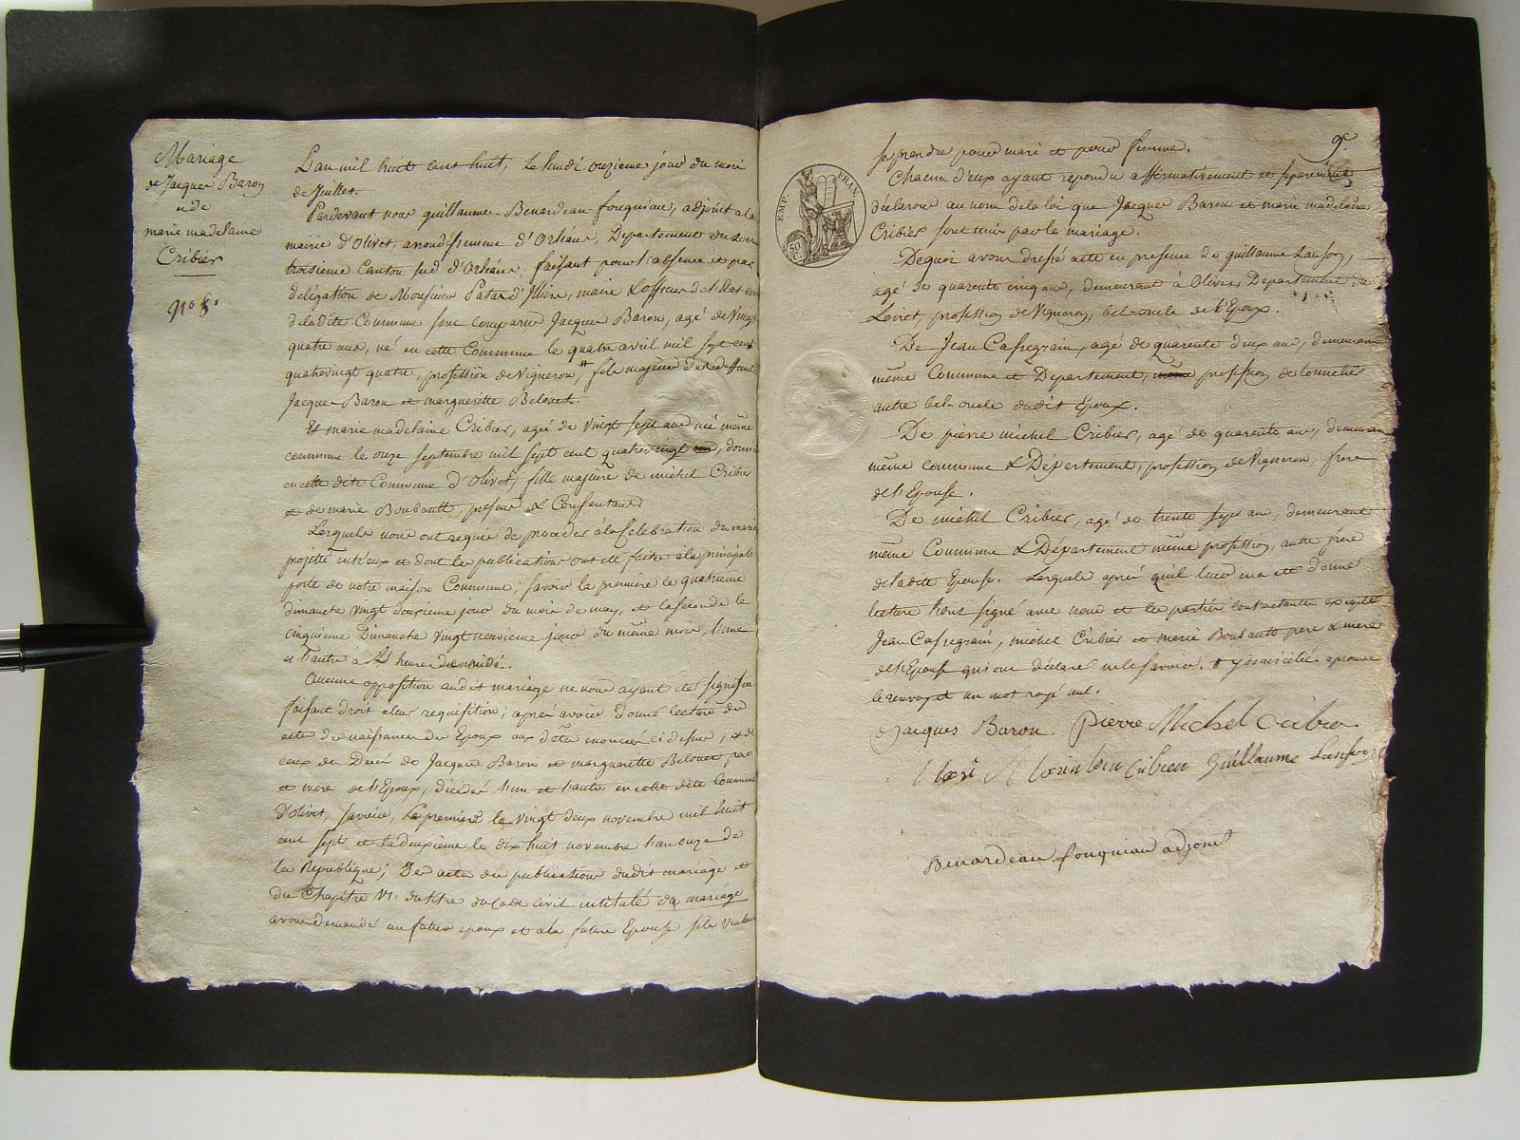 Mariage
de Jacques Baron
et de
marie madelaine
Cribier
N.o 8.
L'an mil huit cent huit, le lundi onzieme jour du mois
de Juillet.
Pardevant nous guillaume Benardeau fougniau, adjoint a la
mairie d'Olivet, arrondissement d'Orléans, Département du Loiret
troisieme Canton sud d'Orléans, faisant pour l'absence et par
délégation de Monsieur maire & officier de l'Etat civil
de la dite Commune sont comparus Jacques Baron, agé de Vingt
quatre ans, né en cette Commune le quatre avril mil sept cent
quatrevingt quatre, profession de Vigneron, fils majeur de
Jacques Baron et marguerite Belouet.
Et marie madelaine Cribier, agée de Vingt sept ans née même
commune le onze septembre mil sept cent quatrevingt
en cette dite Commune d'Olivet, fille majeure de michel Cribier
et de marie Boubault, présens & Consentans
Lesquels nous ont requis de proceder a la Celebration du mariage
projetté entr'eux et dont les publications ont été faites a la principale
porte de notre maison Commune; savoir la premiere le quatrieme
dimanche Vingt deuxieme jour du mois de may, et la seconde le
cinquieme Dimanche Vingt neuvieme jour du même mois, l'une
et l'autre à heure de midi.
Aucune opposition audit mariage ne nous ayant été signifiée
faisant droit a leur requisition; après avoir donné lecture des
actes de naissances des Epoux aux dates énoncées ci dessus, et de
ceux de Décès de Jacques Baron et marguerite Belouet, père
et mere de l'Epoux, décédés l'un et l'autre en cette dite Commune
d'Olivet, savoir, Le premier le Vingt deux novembre mil huit
cent sept et La deuxieme le dix huit novembre l'an onze de
la République; Des actes de publications dudit mariage et
du Chapitre VI. du titre du Code Civil intitulé du mariage
avons demandé au futur epoux et a la future Epouse s'ils Veulent
9.
se prendre pour mari et pour femme.
Chacun d'eux ayant répondu affirmativement et séparément
déclarons au nom de la loi que Jacques Baron et marie madelaine
Cribier sont unis par le mariage.
EMP. FRAN.
De quoi avons dressé acte en presence de guillaume Lanson,
agé de quarente cinq ans, demeurant à Olivet Departement du
Loiret, profession de Vigneron, bel oncle de l'Epoux.
De Jean Cassegrain, agé de quarente deux ans, demeurant
même Commune et Departement, profession de tonnelier
autre bel oncle dudit Epoux.
De pierre michel Cribier, agé de quarente ans, demeurant
même commune & Département, profession de Vigneron, frere
de l'Epouse.
De michel Cribier, agé de trente sept ans, demeurant
même Commune & Département même profession, autre frere
de la dite Epouse. Lesquels après qu'il leur en a été donné
lecture l'ont signé avec nous et les parties contractantes excepté
Jean Cassegrain, michel Cribier et marie Boubault pere & mere
de l'Epouse qui ont déclaré ne le savoir.
le renvoy et un mot rayé nul.
Jacques Baron Pierre Michel Cribier
Cribier Guillaume Lanson
Benardeau fougniau adjoint